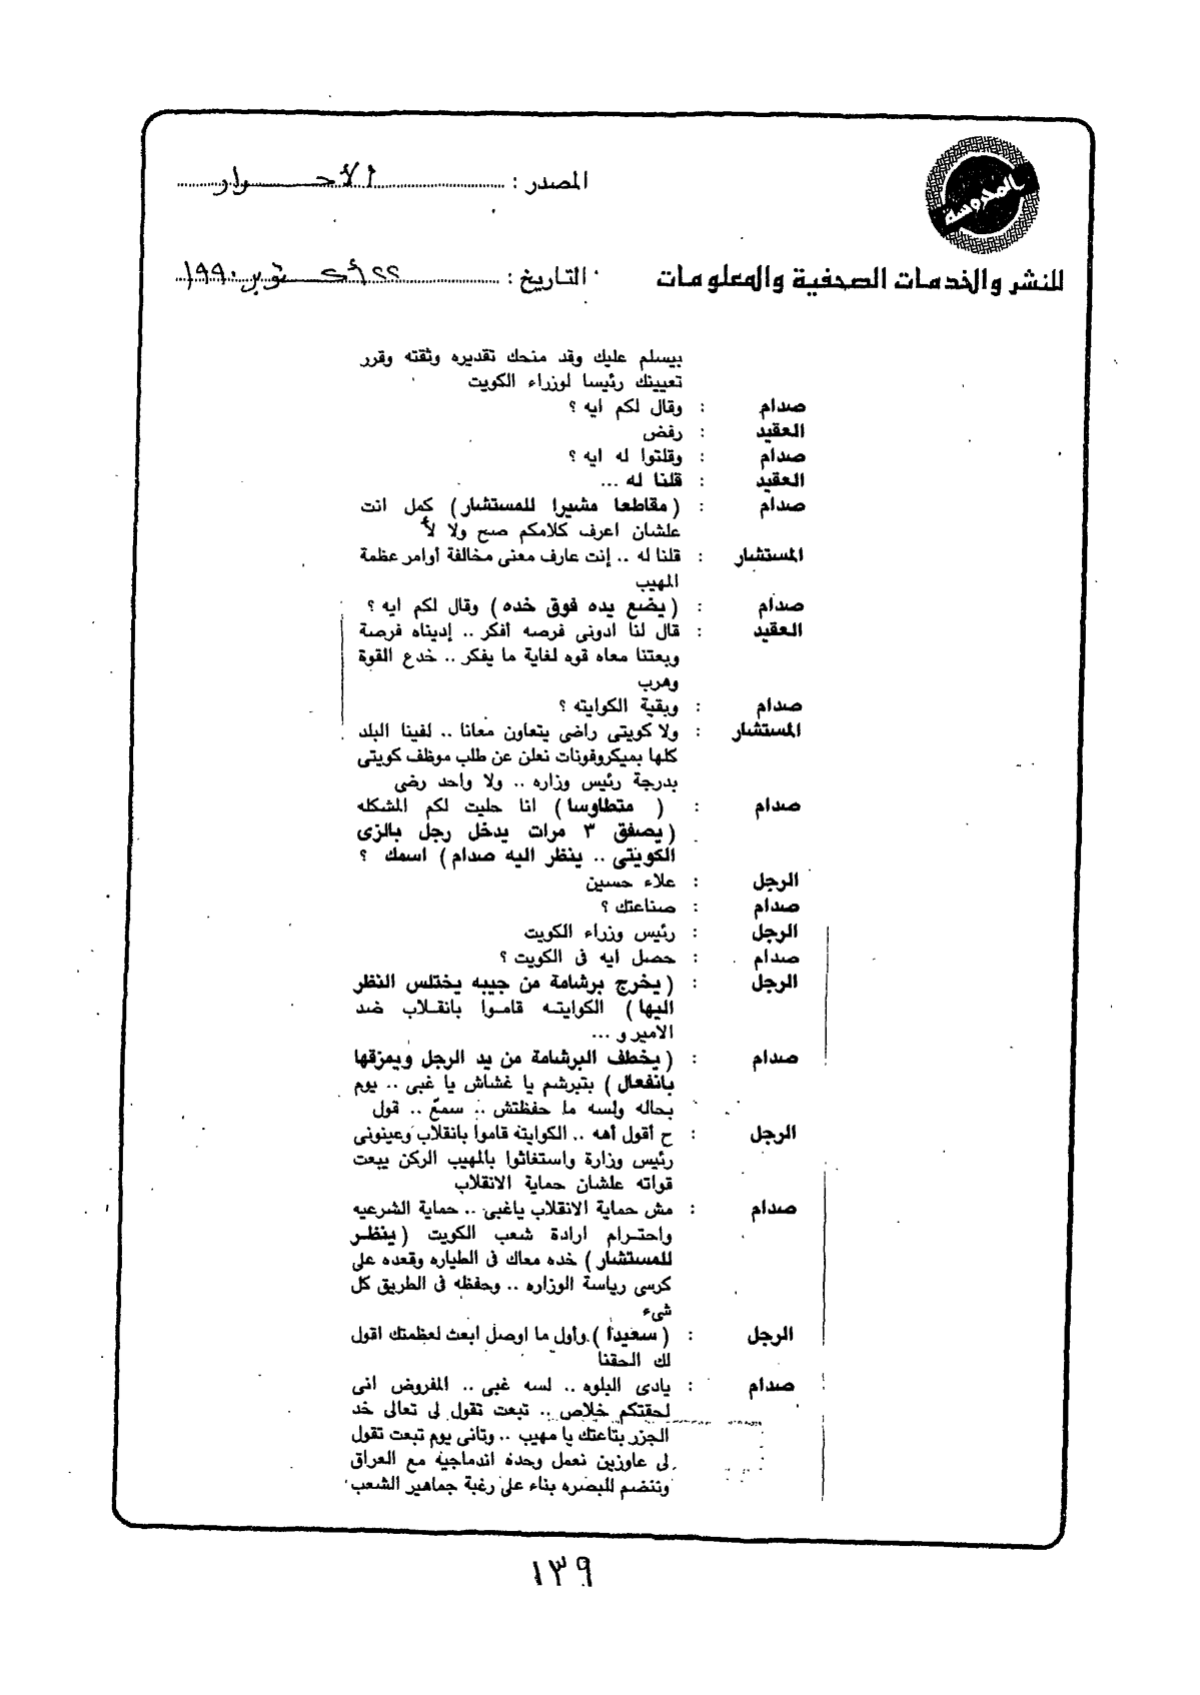 المحروسة
المصدر : الأحرار
للنشر والخدمات الصحفية والمعلومات
التاريخ : ٢٢ أكتوبر ١٩٩٠
بيسلم عليك وقد منحك تقديره وثقته وقرر
تعيينك رئيسا لوزراء الكويت
صدام : وقال لكم ايه ؟
العقيد : رفض
صدام : وقلتوا له ايه ؟
العقيد : قلنا له ...
صدام : ( مقاطعا مشيرا للمستشار ) كمل انت
علشان اعرف كلامكم صح ولا لأ
المستشار : قلنا له .. إنت عارف معنى مخالفة أوامر عظمة
المهيب
صدام : ( يضع يده فوق خده ) وقال لكم ايه ؟
العقيد : قال لنا ادونى فرصه أفكر .. إديناه فرصة
وبعتنا معاه قوه لغاية ما يفكر .. خدع القوة
وهرب
صدام : وبقية الكوايته ؟
المستشار : ولا كويتى راضى يتعاون معانا .. لفينا البلد
كلها بميكروفونات نعلن عن طلب موظف كويتى
بدرجة رئيس وزاره .. ولا واحد رضى
صدام : ( متطاوسا ) انا حليت لكم المشكله
( يصفق ٣ مرات يدخل رجل بالزى
الكويتى .. ينظر اليه صدام ) اسمك ؟
الرجل : علاء حسين
صدام : صناعتك ؟
الرجل : رئيس وزراء الكويت
صدام : حصل ايه فى الكويت ؟
الرجل : ( يخرج برشامة من جيبه يختلس النظر
اليها ) الكوايته قاموا بانقلاب ضد
الامير و ...
صدام : ( يخطف البرشامة من يد الرجل ويمزقها
بانفعال ) بتبرشم يا غشاش يا غبى .. يوم
بحاله ولسه ما حفظتش .. سمع .. قول
الرجل : ح أقول أهه .. الكوايته قاموا بانقلاب وعينونى
رئيس وزارة واستغاثوا بالمهيب الركن يبعت
قواته علشان حماية الانقلاب
صدام : مش حماية الانقلاب ياغبى .. حماية الشرعيه
واحترام ارادة شعب الكويت ( ينظر
للمستشار ) خده معاك فى الطياره وقعده على
كرسى رياسة الوزاره .. وحفظه فى الطريق كل
شىء
الرجل : ( سعيدا ) وأول ما اوصل ابعث لعظمتك اقول
لك الحقنا
صدام : يادى البلوه .. لسه غبى .. المفروض انى
لحقتكم خلاص .. تبعت تقول لى تعالى خد
الجزر بتاعتك يا مهيب .. وتانى يوم تبعت تقول
لى عاوزين نعمل وحدة اندماجية مع العراق
وننضم للبصره بناء على رغبة جماهير الشعب
١٣٩